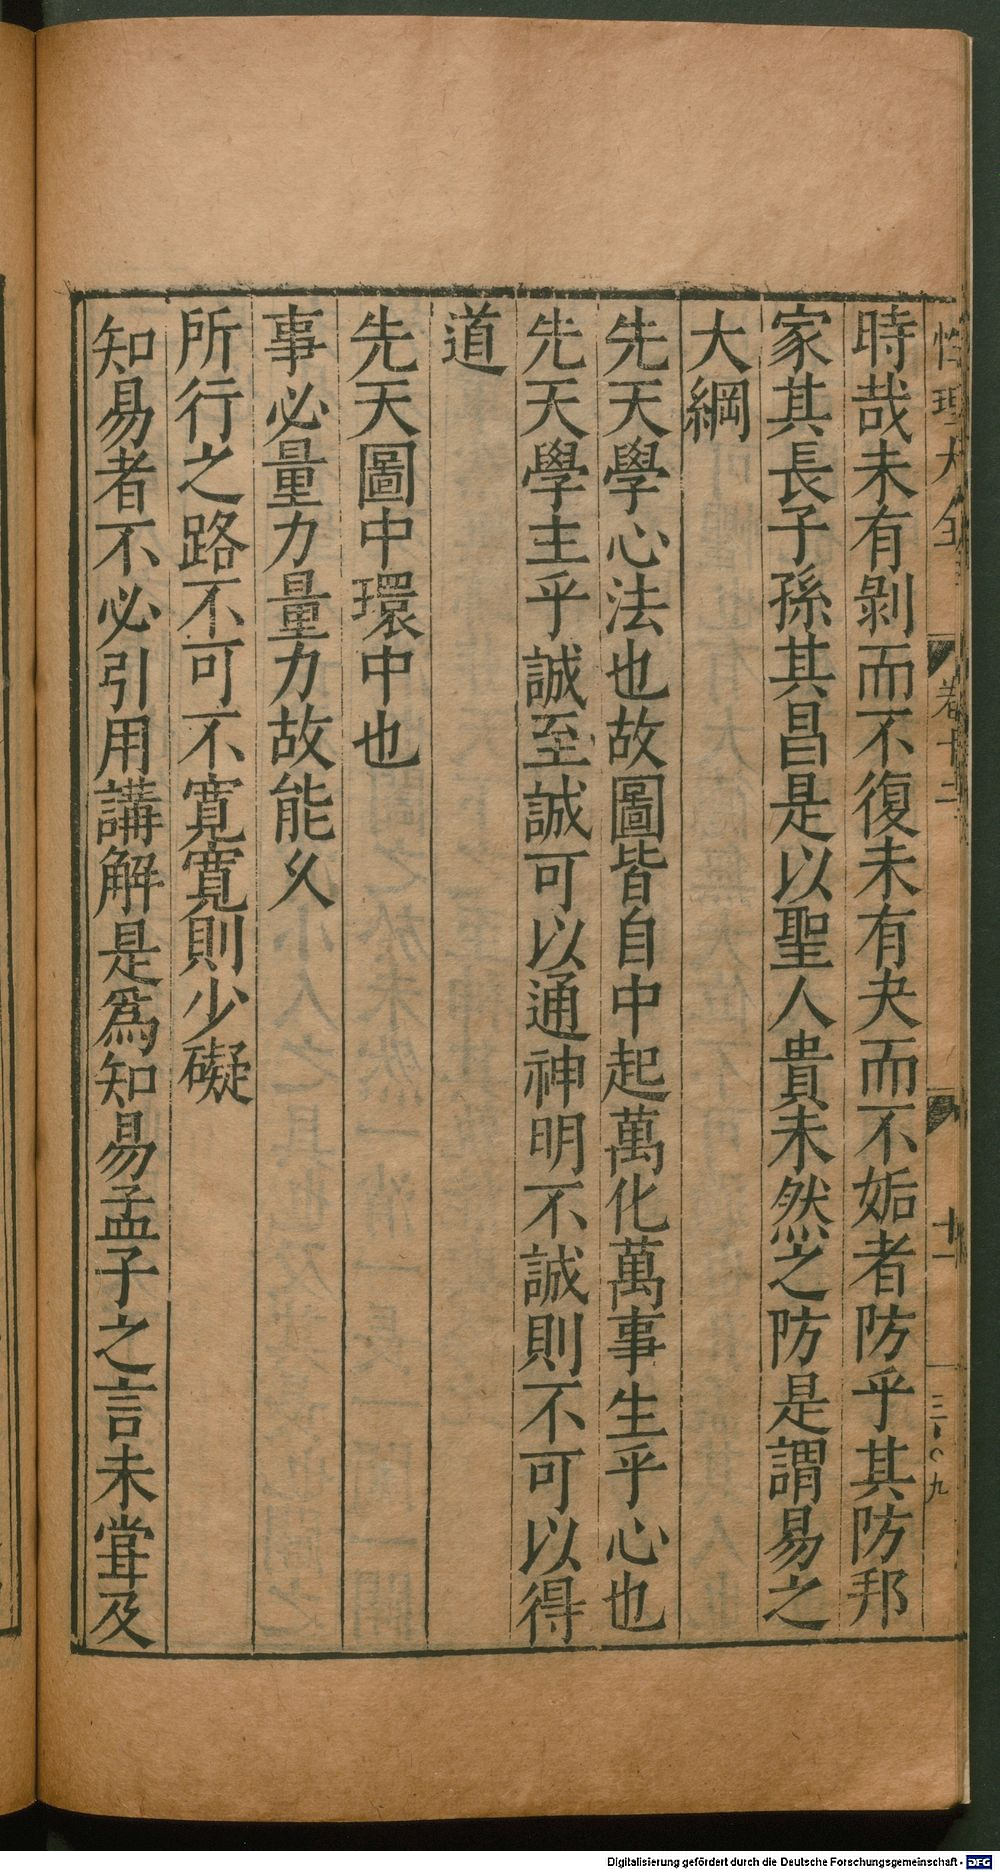 性理大全 卷十二 十一
時哉未有剝而不復未有夬而不姤者防乎其防邦
家其長子孫其昌是以聖人貴未然之防是謂易之
大綱
先天學心法也故圖皆自中起萬化萬事生乎心也
先天學主乎誠至誠可以通神明不誠則不可以得
道
先天圖中環中也
事必量力量力故能久
所行之路不可不寬寬則少礙
知易者不必引用講解是爲知易孟子之言未甞及
Digitalisierung gefördert durch die Deutsche Forschungsgemeinschaft - DFG